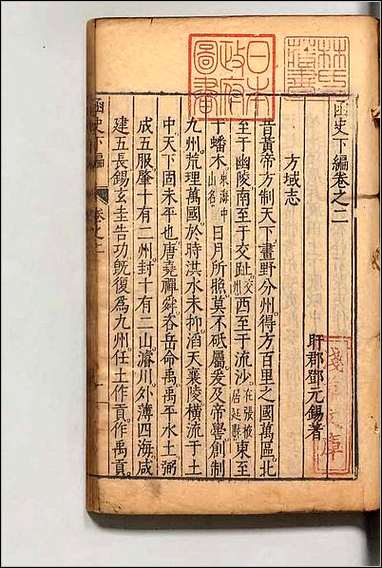 函史下編卷之二
盱郡鄧元錫著
方域志
昔黃帝方制天下畫野分州得方百里之國萬區北
至于幽陵南至于交趾交州西至于流沙在張掖居延縣東至
于蟠木東海中山名日月所照莫不砥屬爰及帝嚳創制
九州荒理萬國於時洪水未抑滔天襄陵橫流于土
中天下固未平也唐堯禪舜咨岳命禹禹平水土弼
成五服肇十有二州封十有二山濬川外薄四海咸
建五長錫玄圭告功旣復爲九州任土作貢作禹貢
函史下編
卷之二
日本
政府
圖書
林氏
藏書
淺草文庫